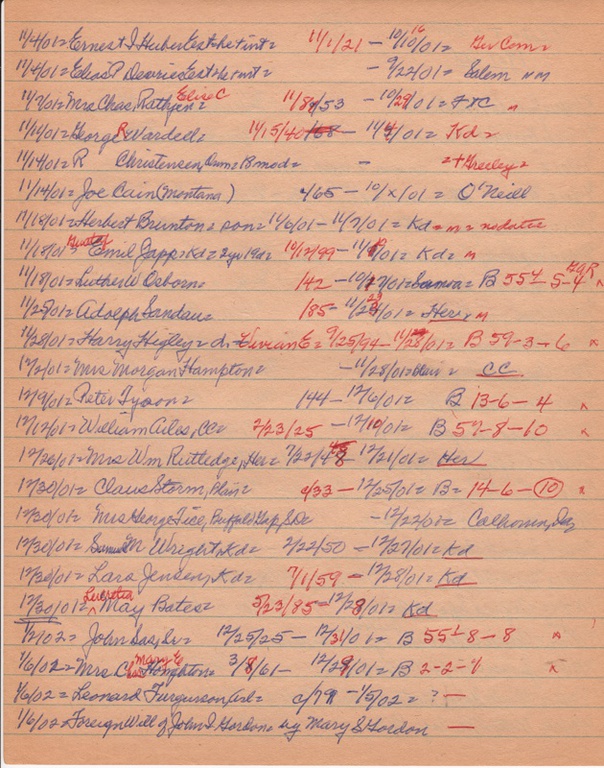 11/4/01 = Ernest I Huber Est hrs int = 11/1/21 – 10/10/01 = 16 Ger Com =
11/4/01 = Elias P Est hrs int = – 9/22/01 = Salem
11/7/01 = Mrs Chas, Rathjen = Elise C 11/8/53 – 10/29/01 =
11/11/01 = George R Wardell = 11/15/40 – 11/4/01 = Kd =
11/14/01 = R Christensen, – = + Greeley =
11/14/01 = Joe Cain (Montana) c/65 – 10/x/01 = O'Neill
11/18/01 = Herbert Brunton = son = 11/6/01 – 11/7/01 = Kd = m = no dates
11/18/01 = Gustof Emil Japp = Kd = 2yr 19d = 10/12/99 – 11/1/01 = Kd = m
11/18/01 = Luther W Osborn = 1/42 – 10/17/01 = Samoa = B 55 1/2 – 5 – 4 GAR x
11/25/01 = Adolph Sandau = 1/85 = 11/23/01 = Her = m
11/28/01 = Harry Higley = d = Vivian E = 9/25/94 – 11/28/01 = B 59 – 3 – 6 x
12/2/01 = Mrs Morgan Hampton = – 11/28/01 = Blair = CC
12/9/01 = Peter Tyson = 1/44 – 12/6/01 = B 13 – 6 – 4 x
12/12/01 = William Ailes, Co = 2/23/25 – 12/10/01 = B 57 – 8 – 10 x
12/26/01 = Mrs Wm Rutledge, Her = 7/22/48 12/21/01 = Her
12/30/01 = Claus Storm, Blair = c/33 – 12/25/01 = B = 14 – 6 – 10 x
12/30/01 = Mrs George Tice, Buffalo Gap, S.D. = – 12/22/01 = Calhoun,
12/30/01 = Samuel M Wright, Kd = 2/22/50 – 12/27/01 = Kd
12/30/01 = Lara Jensen, Kd = 7/1/59 – 12/28/01 = Kd
12/30/01 = Lucretia May Bates = 5/23/85 = 12/28/01 = Kd
1/2/02 = John Sas, Sr = 12/25/25 – 12/31/01 = B 55 1/2 – 8 – 8 x
1/6/02 = Mrs C Mary E Houghton = 3/8/61 – 12/29/01 = B 2 – 2 – 4 x
1/6/02 = Leonard Furgusson, Arl = c/79 – 1/5/02 = ? –
1/6/02 = Foreign Will of John I Gordon = by Mary S Gordon –